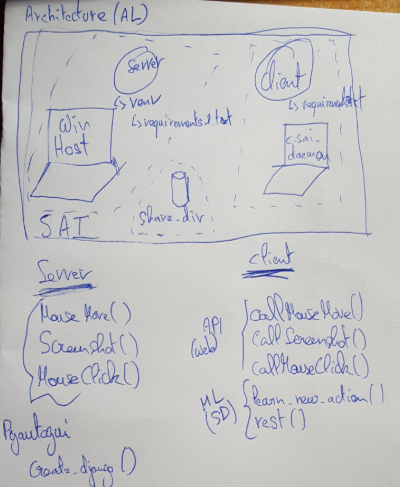 Architecture (AL)
Server
↳ venv
↳ requirements.txt
Client
↳ requirements.txt
Win
Host
c.sai_
daemon
share_dir
SAI
Server
MouseMove()
Screenshot()
MouseClick()
Pyautogui
Create_django()
Client
API
(web)
CallMouseMove()
CallScreenshot()
CallMouseClick()
ML
(SD)
learn_new_action()
rest()